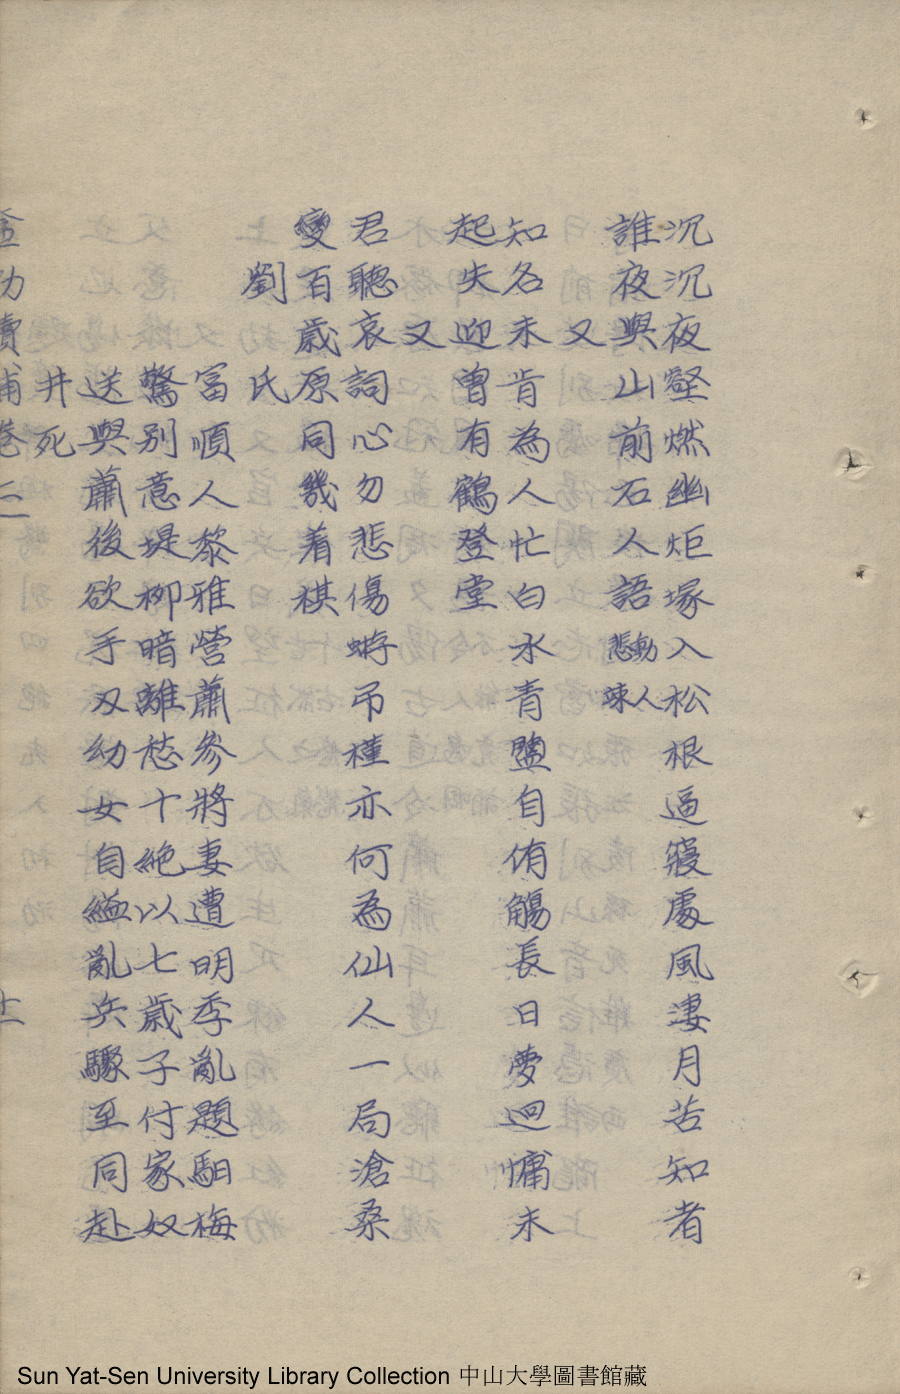 沉沉夜壑燃幽炬塚入松根逼寢處風淒月苦知者
誰夜與山前石人語悲動竦人
又
知名未肯為人忙白水青鹽自侑觴長日夢迴慵未
起失迎曾有鶴登堂
又
君聽哀詞心勿悲傷蝣吊槿亦何為仙人一局滄桑
變百歲原同幾着棋
劉氏
富順人黎雅營蕭參將妻遭明季亂題駟梅
驚別意堤柳暗離愁十絕以七歲子付家奴
送與蕭後欲手刃幼女自縊亂兵驟至同赴
井死
Sun Yat-Sen University Library Collection 中山大學圖書館藏